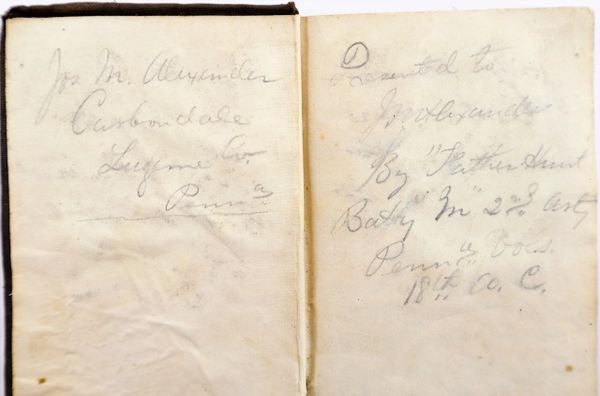 Jos M. Alexander
Carbondale
Luzerne Co.
Pennᵃ
Presented to
Jos Alexander
By "Father Hunt"
Batty "M" 2nd Arty
Pennᵃ Vols.
18th A. C.